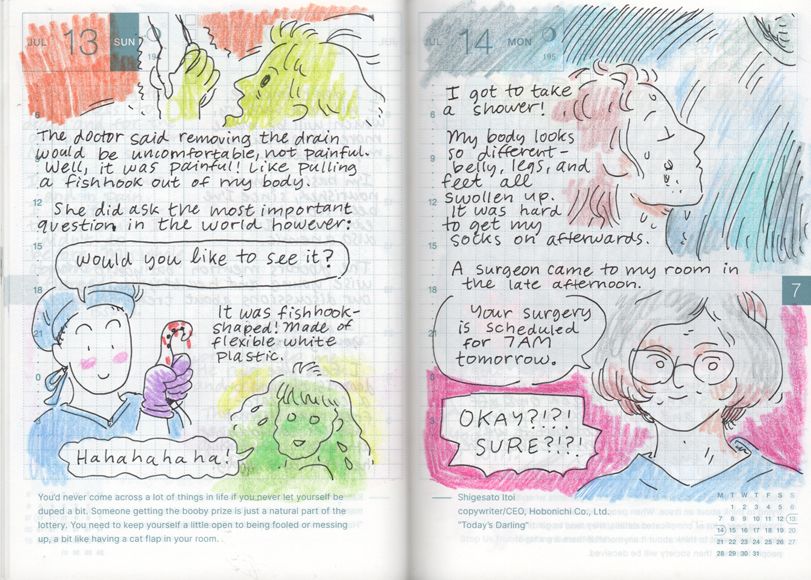 JUL 13 SUN
194
The doctor said removing the drain
would be uncomfortable, not painful.
Well, it was painful! Like pulling
a fishhook out of my body.
She did ask the most important
question in the world however:
would you like to see it?
It was fishhook-
shaped! Made of
flexible white
plastic.
Hahahahaha!
6
9
12
15
18
21
0
3
You'd never come across a lot of things in life if you never let yourself be
duped a bit. Someone getting the booby prize is just a natural part of the
lottery. You need to keep yourself a little open to being fooled or messing
up, a bit like having a cat flap in your room.
JUL 14 MON
195
I got to take
a shower!
My body looks
so different-
belly, legs, and
feet all
swollen up.
It was hard
to get my
socks on afterwards.
A surgeon came to my room in
the late afternoon.
Your surgery
is scheduled
for 7AM
tomorrow.
OKAY?!?!
SURE?!?!
6
9
12
15
18
21
0
3
7
Shigesato Itoi
copywriter/CEO, Hobonichi Co., Ltd.
"Today's Darling"
M T W T F S S
1 2 3 4 5 6
7 8 9 10 11 12 13
14 15 16 17 18 19 20
21 22 23 24 25 26 27
28 29 30 31